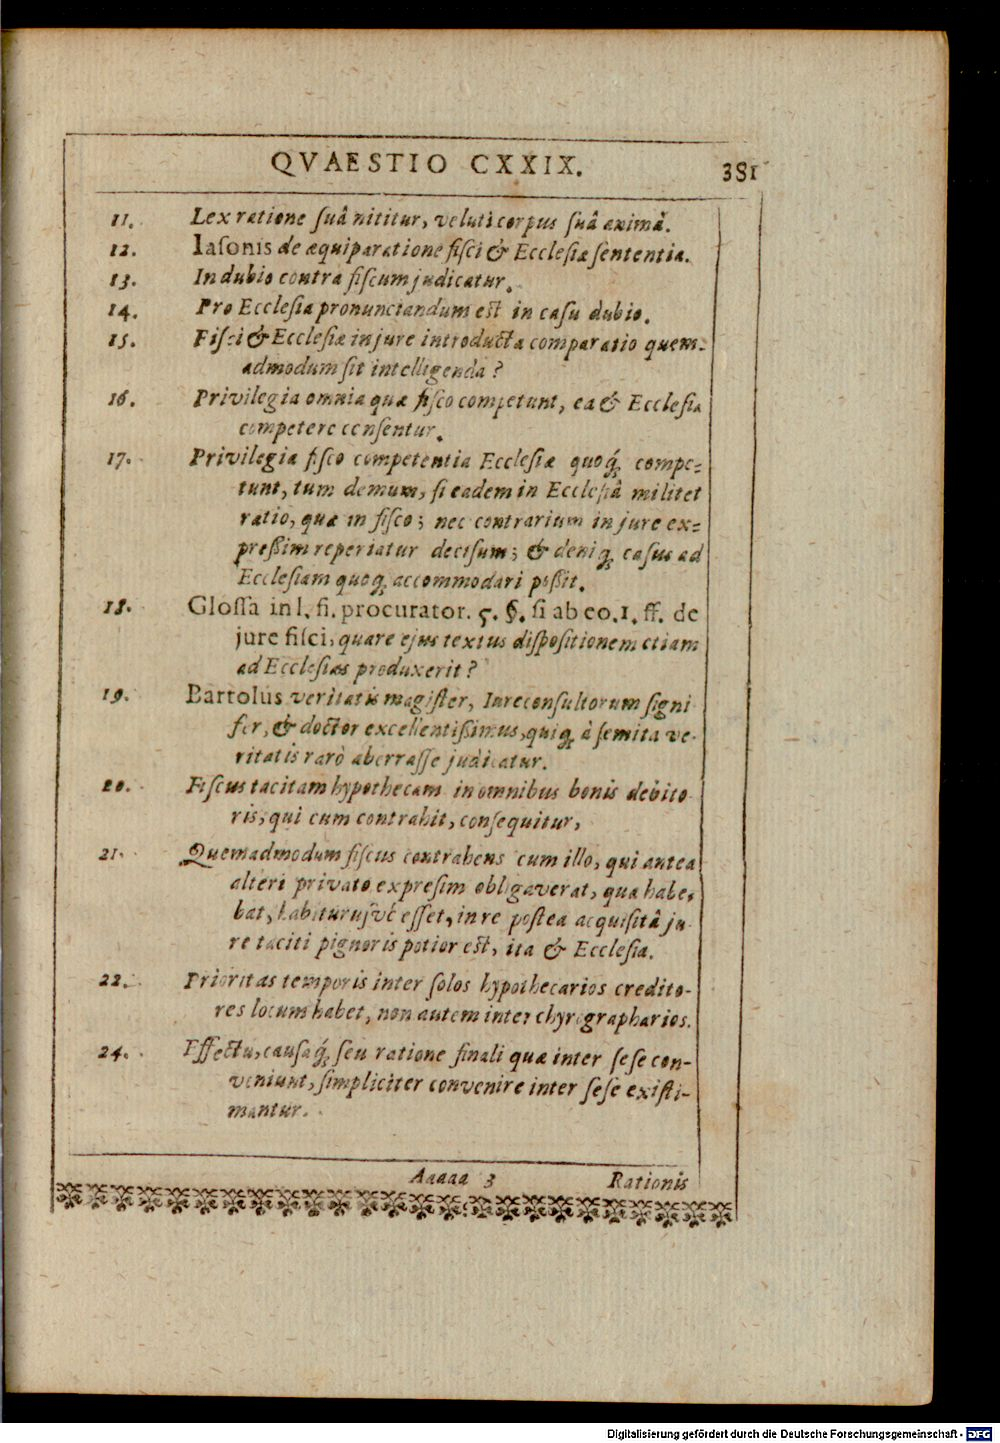 QVAESTIO CXXIX. 381
11. Lex ratione ſuâ nititur, veluti corpus ſuâ animâ.
12. Iaſonis de æquiparatione fiſci & Eccleſiæ ſententia.
13. In dubio contra fiſcum judicatur.
14. Pro Eccleſia pronunciandum est in caſu dubio.
15. Fiſci & Eccleſiæ in jure introducta comparatio quem-
admodum ſit intelligenda ?
16. Privilegia omnia quæ fiſco competunt, ea & Eccleſia
competere cenſentur.
17. Privilegia fiſco competentia Eccleſiæ quoq́; compe-
tunt, tum demum, ſi eadem in Eccleſiâ militet
ratio, quæ in fiſco; nec contrarium in jure ex-
preßim reperiatur deciſum; & deniq; caſus ad
Eccleſiam quoq; accommodari poßit.
18. Gloſſa in l. fi. procurator. 5. §. ſi ab eo. 1. ff. de
jure fiſci, quare ejus textus diſpoſitionem etiam
ad Eccleſias produxerit ?
19. Bartolus veritatis magiſter, Iureconſultorum ſigni
fer, & doctor excellentißimus, quiq; à ſemita ve-
ritatis rarò aberraſſe judicatur.
20. Fiſcus tacitam hypothecam in omnibus bonis debito
ris, qui cum contrahit, conſequitur,
21. Quemadmodum fiſcus contrahens cum illo, qui antea
alteri privato expreſim obligaverat, quæ habe-
bat, habiturusvé eſſet, in re poſtea acquiſitâ ju-
re taciti pignoris potior est, ita & Eccleſia.
22. Prioritas temporis inter ſolos hypothecarios credito-
res locum habet, non autem inter chyrographarios.
24. Effectu, cauſaq́; ſeu ratione finali quæ inter ſeſe con-
veniunt, ſimpliciter convenire inter ſeſe exiſti-
mantur.
Aaaaa 3 Rationis
Digitalisierung gefördert durch die Deutsche Forschungsgemeinschaft - DFG